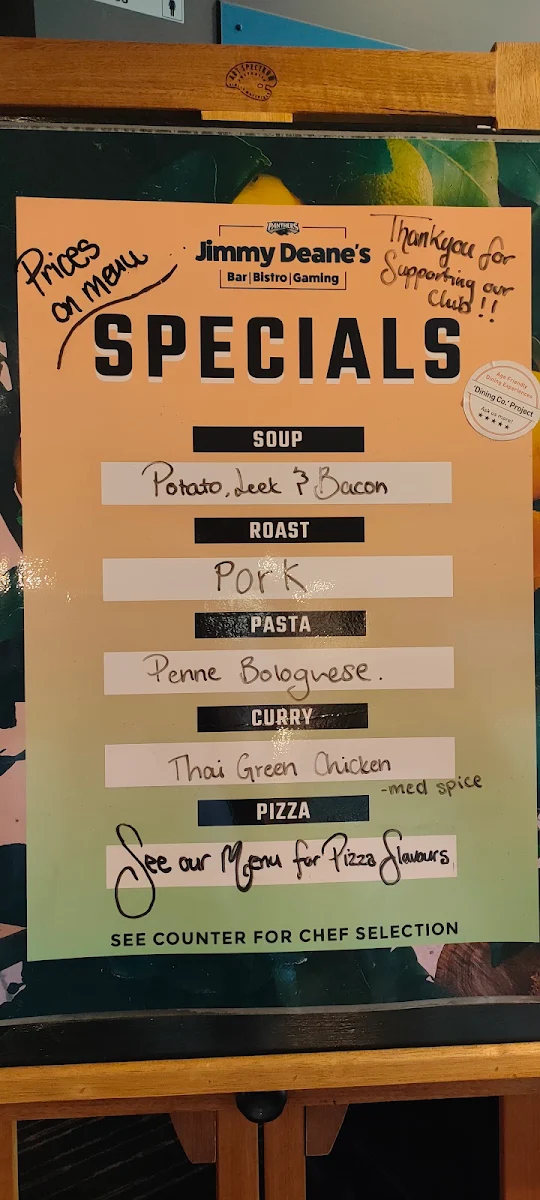 ART SPECTRUM
Prices
on menu
PANTHERS
Jimmy Deane's
Bar | Bistro | Gaming
Thankyou for
Supporting our
Club!!
SPECIALS
Age Friendly
Dining Experiences
'Dining Co.' Project
Ask us more!
★★★★★
SOUP
Potato, Leek & Bacon
ROAST
Pork
PASTA
Penne Bolognese.
CURRY
Thai Green Chicken
-med spice
PIZZA
See our Menu for Pizza flavours
SEE COUNTER FOR CHEF SELECTION